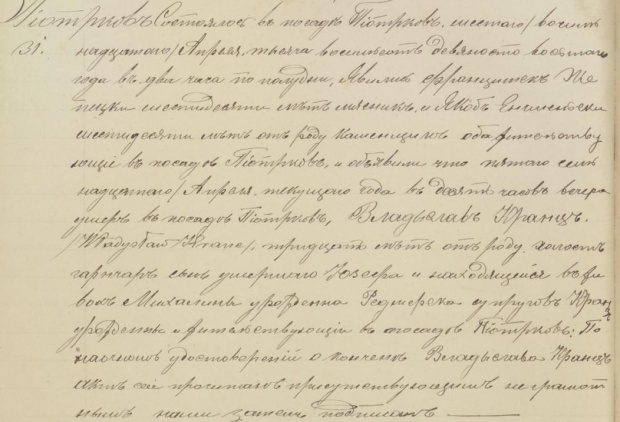 Піотрковъ Состоялось въ посадѣ Піотрковъ, шестаго /восем
31. надцатаго/ Апрѣля, тысяча восемьсотъ девяносто восьмаго
года въ два часа по полудни, Явились Францишекъ
шестидесяти лѣтъ мясникъ, и Якобъ
шестидесяти лѣтъ отъ роду каменщикъ оба жительству
ющіе въ посадѣ Піотрковѣ, и объявили что пятаго /семь
надцатаго/ Апрѣля, текущаго года въ десять часовъ вечера
умеръ въ посадѣ Піотрковѣ, Владыславъ Кранцъ.
/Władysław Kranc/, тридцати лѣтъ отъ роду холостъ
гарнчаръ сынъ умершаго Іозефа и находящейся въ жи
выхъ Михалины урожденна супруговъ Кранцъ
урожденный и жительствующій въ посадѣ Піотрковѣ; По
настоящемъ удостовѣреніи о кончинѣ Владыслава Кранцъ
актъ сей прочитанъ присутствующимъ неграмот
нымъ нами затемъ подписанъ